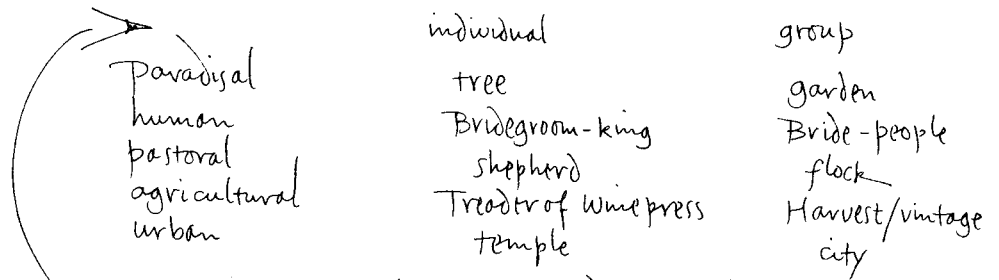 individual group
paradisal tree garden
human Bridegroom-king Bride-people
pastoral shepherd flock
agricultural Treader of Winepress Harvest/vintage
urban temple city